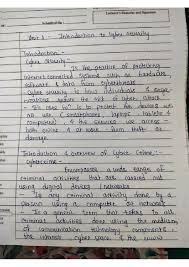 Lecturer's Remarks and Signature
Part 1 - Introduction to Cyber Security
Introduction :-
Cyber Security :-
Is the practice of protecting
internet connected systems such as hardware
software & data from cyberthreats
Cyber security is to individuals &
organisations reduce the risk of cyber attack.
is to protect the devices we
all use (smartphones, laptops, tablets &
computers) & the services we access -
both online & at work from theft or
damage.
Introduction & overview of Cyber Crime:-
Cybercrime -
Encompasses a wide range of
criminal activities that are carried out
using digital devices / networks
Is any criminal activity done by a
person using a computer or network
Is a general term that refers to all
criminal activities done using the medium
of communication technology components,
the internet, cyber space & the